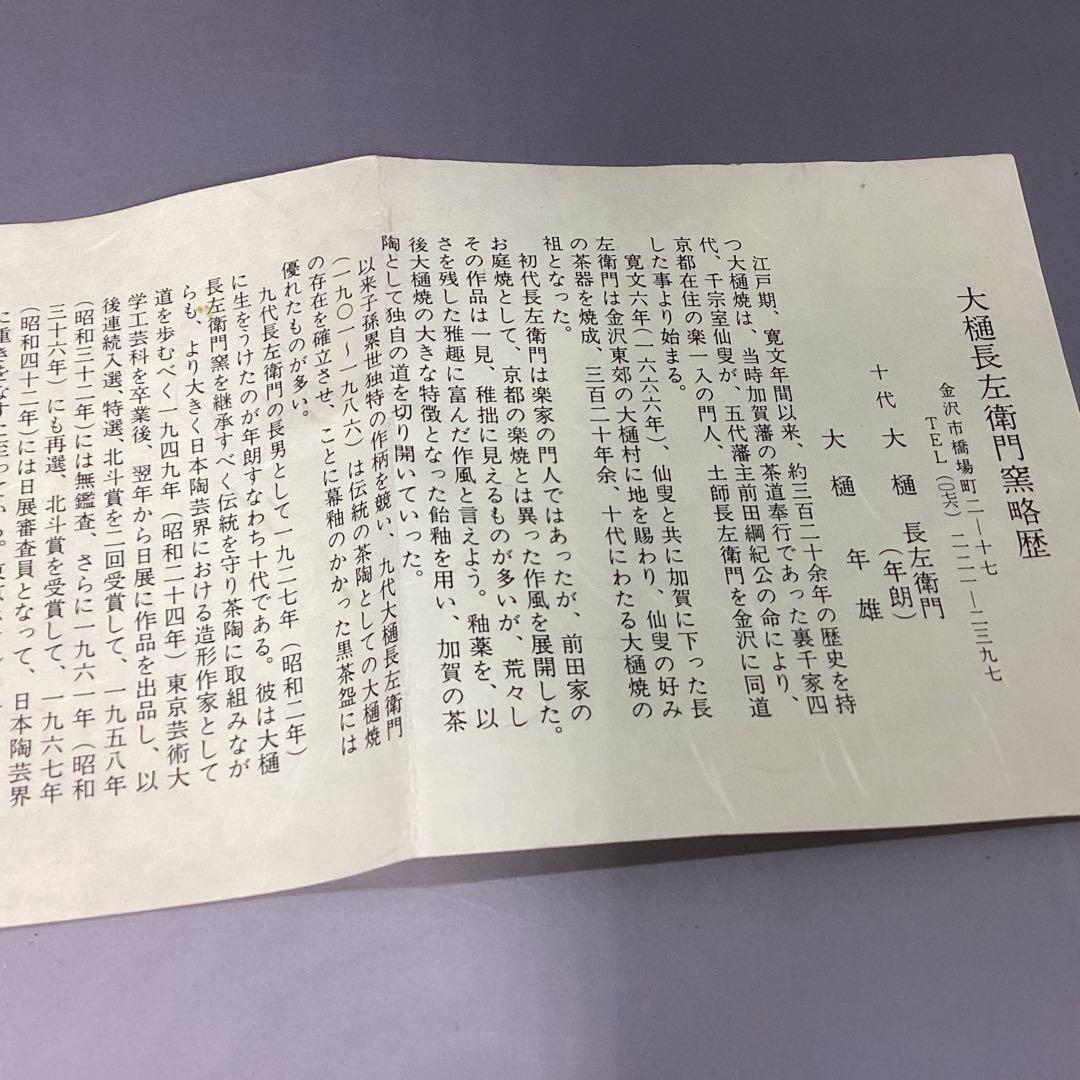 大樋長左衛門窯略歴
金沢市橋場町二―十七
TEL(〇七六)二二一―二三九七
十代 大樋 長左衛門
(年朗)
大樋 年雄
江戸期、寛文年間以来、約三百二十余年の歴史を持
つ大樋焼は、当時加賀藩の茶道奉行であった裏千家四
代、千宗室仙叟が、五代藩主前田綱紀公の命により、
京都在住の楽一入の門人、土師長左衛門を金沢に同道
した事より始まる。
寛文六年(一六六六年)、仙叟と共に加賀に下った長
左衛門は金沢東郊の大樋村に地を賜わり、仙叟の好み
の茶器を焼成、三百二十年余、十代にわたる大樋焼の
祖となった。
初代長左衛門は楽家の門人ではあったが、前田家の
お庭焼として、京都の楽焼とは異った作風を展開した。
その作品は一見、稚拙に見えるものが多いが、荒々し
さを残した雅趣に富んだ作風と言えよう。釉薬を、以
後大樋焼の大きな特徴となった飴釉を用い、加賀の茶
陶として独自の道を切り開いていった。
以来子孫累世独特の作柄を競い、九代大樋長左衛門
(一九〇一〜一九八六)は伝統の茶陶としての大樋焼
の存在を確立させ、ことに幕釉のかかった黒茶盌には
優れたものが多い。
九代長左衛門の長男として一九二七年(昭和二年)
に生をうけたのが年朗すなわち十代である。彼は大樋
長左衛門窯を継承すべく伝統を守り茶陶に取組みなが
らも、より大きく日本陶芸界における造形作家として
道を歩むべく一九四九年(昭和二十四年)東京芸術大
学工芸科を卒業後、翌年から日展に作品を出品し、以
後連続入選、特選、北斗賞を二回受賞して、一九五八年
(昭和三十二年)には無鑑査、さらに一九六一年(昭和
三十六年)にも再選、北斗賞を受賞して、一九六七年
(昭和四十二年)には日展審査員となって、日本陶芸界
に重きをなすに至っている。